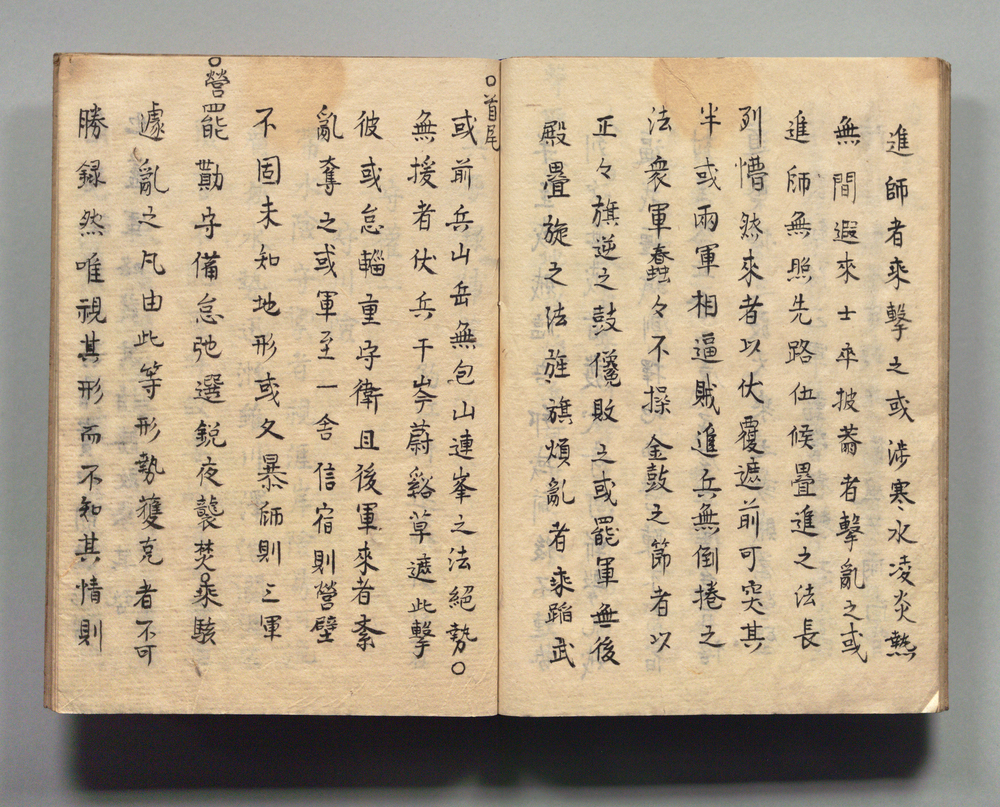 進師者乘擊之或涉寒水凌炎熱
無間遐來士卒披蓊者擊亂之或
進師無照先路伍候疊進之法長
列懵然來者以伏覆遮前可突其
半或兩軍相逼賊進兵無倒捲之
法衆軍蠢々不操金鼓之節者以
正々旗逆之鼓儳敗之或罷軍無後
殿疊旋之法旌旗煩亂者乘蹈武
○首尾
或前兵山岳無包山連峯之法絕勢○
無援者伏兵于岑蔚谿草遮此擊
彼或怠輜重守衛且後軍來者紊
亂奪之或軍至一舍信宿則營壁
不固未知地形或久暴師則三軍
○營
罷勩守備怠弛選銳夜襲焚○乘駭
遽亂之凡由此等形勢獲克者不可
勝録然唯視其形而不知其情則